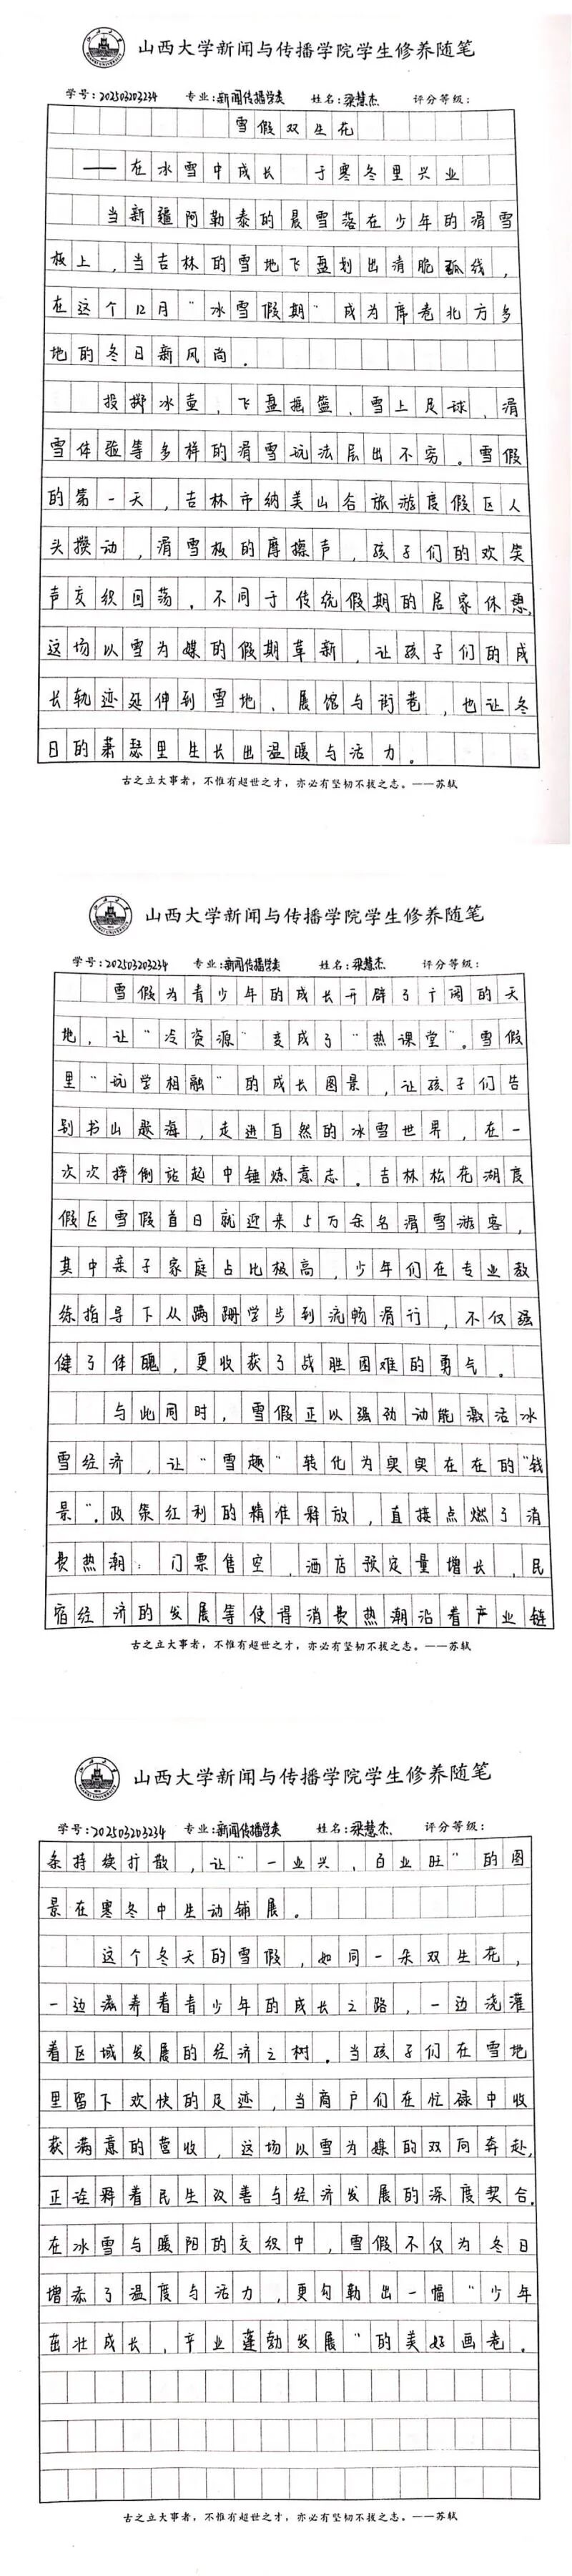 山西大学新闻与传播学院学生修养随笔
学号：202503203234 专业：新闻传播学类 姓名：梁慧杰 评分等级：
雪假双生花
——在冰雪中成长 于寒冬里兴业
当新疆阿勒泰的晨雪落在少年的滑雪
板上，当吉林的雪地飞盘划出清脆弧线，
在这个12月"冰雪假期"成为席卷北方多
地的冬日新风尚。
投掷冰壶、飞盘摇篮、雪上足球、滑
雪体验等多样的滑雪玩法层出不穷。雪假
的第一天，吉林市纳美山谷旅游度假区人
头攒动，滑雪板的摩擦声，孩子们的欢笑
声交织回荡。不同于传统假期的居家休憩，
这场以雪为媒的假期革新，让孩子们的成
长轨迹延伸到雪地、展馆与街巷，也让冬
日的萧瑟里生长出温暖与活力。
古之立大事者，不惟有超世之才，亦必有坚韧不拔之志。——苏轼
山西大学新闻与传播学院学生修养随笔
学号：202503203234 专业：新闻传播学类 姓名：梁慧杰 评分等级：
雪假为青少年的成长开辟了广阔的天
地，让"冷资源"变成了"热课堂"。雪假
里"玩学相融"的成长图景，让孩子们告
别书山题海，走进自然的冰雪世界，在一
次次摔倒站起中锤炼意志。吉林松花湖度
假区雪假首日就迎来5万余名滑雪游客，
其中亲子家庭占比极高，少年们在专业教
练指导下从蹒跚学步到流畅滑行，不仅强
健了体魄，更收获了战胜困难的勇气。
与此同时，雪假正以强劲动能激活冰
雪经济，让"雪趣"转化为实实在在的"钱
景"。政策红利的精准释放，直接点燃了消
费热潮：门票售空，酒店预定量增长，民
宿经济的发展等使得消费热潮沿着产业链
古之立大事者，不惟有超世之才，亦必有坚韧不拔之志。——苏轼
山西大学新闻与传播学院学生修养随笔
学号：202503203234 专业：新闻传播学类 姓名：梁慧杰 评分等级：
条持续扩散，让"一业兴，百业旺"的图
景在寒冬中生动铺展。
这个冬天的雪假，如同一朵双生花，
一边滋养着青少年的成长之路，一边浇灌
着区域发展的经济之树。当孩子们在雪地
里留下欢快的足迹，当商户们在忙碌中收
获满意的营收，这场以雪为媒的双向奔赴，
正诠释着民生改善与经济发展的深度契合。
在冰雪与暖阳的交织中，雪假不仅为冬日
增添了温度与活力，更勾勒出一幅"少年
茁壮成长，产业蓬勃发展"的美好画卷。
古之立大事者，不惟有超世之才，亦必有坚韧不拔之志。——苏轼